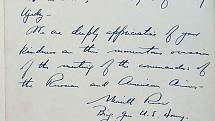 We are deeply appreciative of your
kindness on the momentous occasion
of the meeting of the commanders of
the Russian and American Armies.
Brig. Gen U.S. Army.